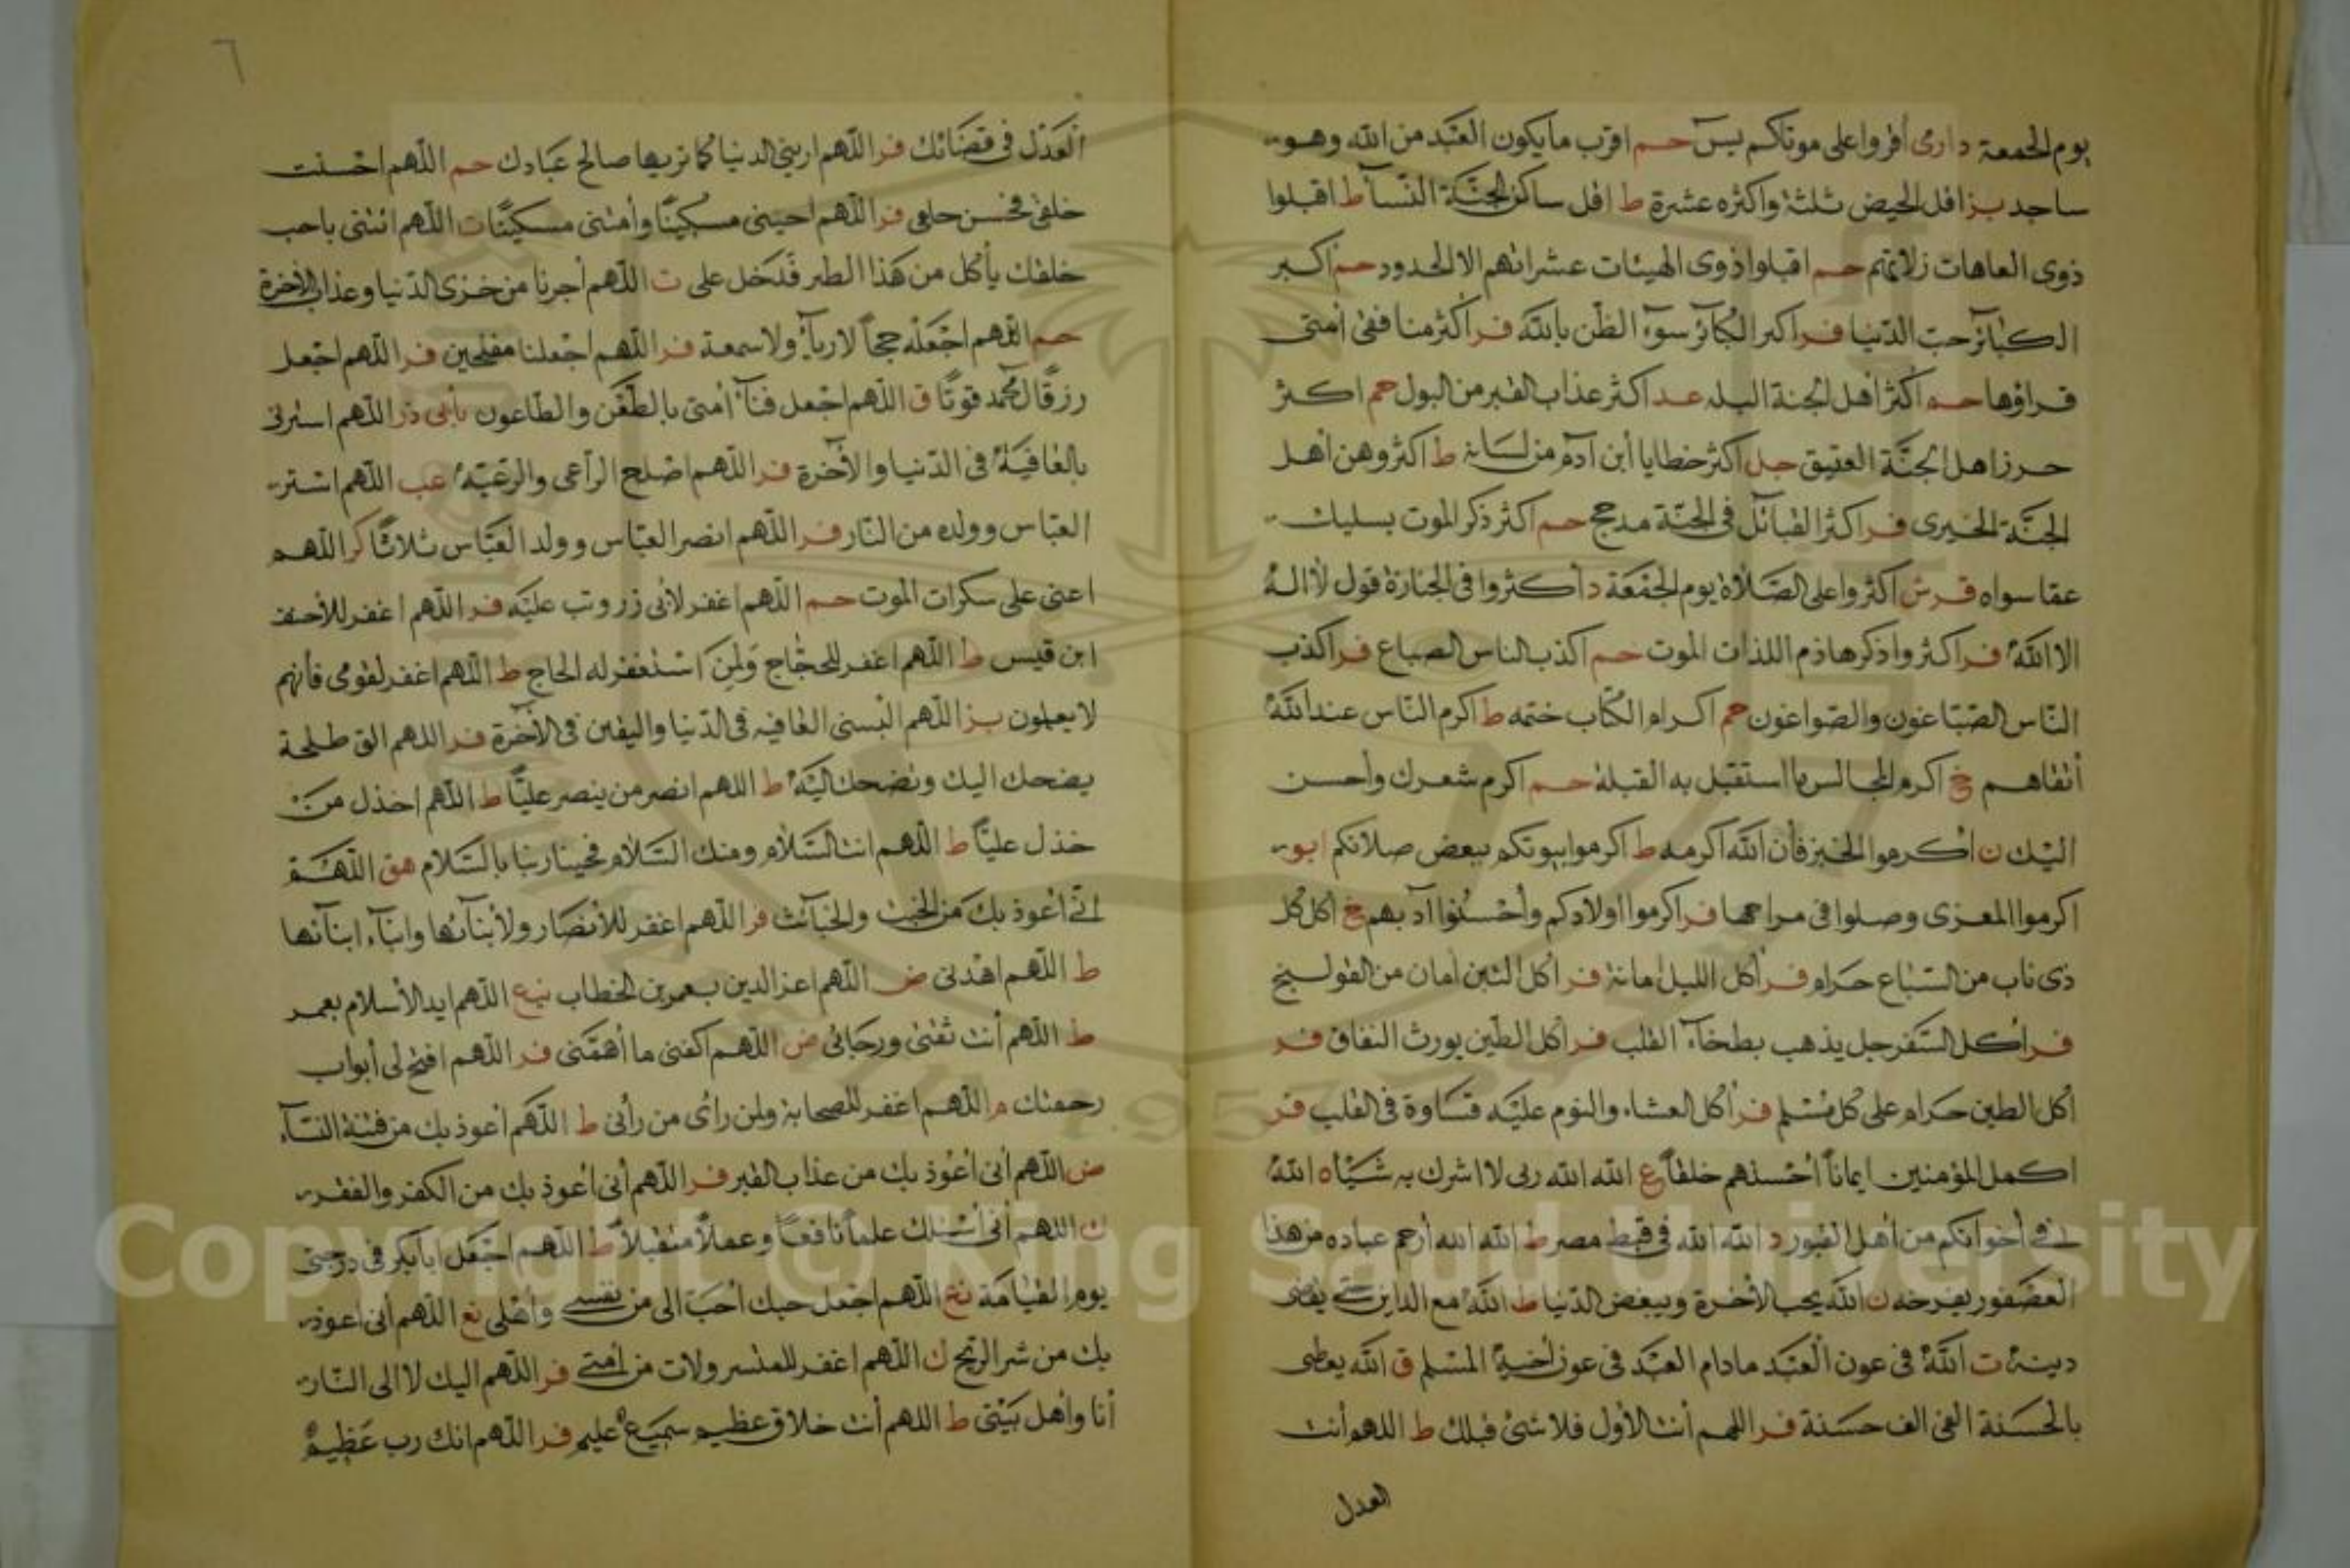 يوم الجمعة دارى أقروا على موتاكم يس حم اقرب ما يكون العبد من الله وهو
ساجد بز اقل الحيض ثلثة واكثره عشرة ط اقل ساكن الجنة النسآ ط اقبلوا
ذوى العاهات زلاتهم حم اقبلوا ذوى الهيئات عشراتهم الا الحدود حم اكبر
الكبآئر حب الدنيا فر اكبر الكبآئر سوء الظن بالله فر اكثر منافقى أمتى
قراؤها حم اكثر أهل الجنة البله عد اكثر عذاب القبر من البول حم اكثر
حرز اهل الجنة العقيق حل اكثر خطايا أبن آدم من لسانه ط اكثروهن أهل
الجنة الخيرى فر اكثر القبآئل فى الجنة مدحج حم اكثر ذكر الموت يسليك
عما سواه فر ش اكثروا على الصلاة يوم الجمعة د أكثروا فى الجنازة قول لا اله
الا الله فر اكثروا ذكر هاذم اللذات الموت حم اكذب الناس الصباع فر اكذب
الناس الصباغون والصواغون حم اكرام الكتاب ختمه ط اكرم الناس عند الله
أتقاهم خ اكرم المجالس ما استقبل به القبلة حم اكرم شعرك وأحسن
اليك ن أكرموا الخبز فأن الله اكرمه ط اكرموا بيوتكم ببعض صلاتكم ابو
اكرموا المعزى وصلوا فى مراحها فر اكرموا اولادكم وأحسنوا آدابهم خ اكل كل
ذى ناب من السباع حرام فر أكل الليل امانة فر اكل التين امان من القولنج
فر أكل السفرجل يذهب بطخآء القلب فر اكل الطين يورث النفاق فر
اكل الطين حرام على كل مسلم فر أكل العشاء والنوم عليه قساوة فى القلب فر
اكمل المؤمنين ايمانا أحسنهم خلقا ع الله الله ربى لا اشرك به شيأ ه الله
فى أخوانكم من أهل القبور د الله الله فى قبط مصر ط الله الله أرحم عباده من هذا
العصفور بفرخه ن الله يحب الأخرة ويبغض الدنيا ط الله مع الداين حتى يقضى
دينه ت الله فى عون العبد مادام العبد فى عون أخيه المسلم ق الله يعطى
بالحسنة الفى الف حسنة فر اللهم أنت الأول فلا شئ قبلك ط اللهم أنت
العدل
٦
العدل فى قضائك فر اللهم ارينى الدنيا كما تريها صالح عبادك حم اللهم احسنت
خلقى فحسن خلقى فر اللهم احينى مسكينا وأمتنى مسكينا ت اللهم ائتنى باحب
خلقك يأكل من هذا الطير فدخل على ت اللهم أجرنا من خزى الدنيا وعذاب الأخرة
حم اللهم اجعله حجا لا ريآء ولا سمعة فر اللهم اجعلنا مفلحين فر اللهم اجعل
رزق ال محمد قوتا ق اللهم اجعل فنآء أمتى بالطعن والطاعون بأبى ذر اللهم استرنى
بالعافية فى الدنيا والأخرة فر اللهم اصلح الراعى والرعية عب اللهم استر
العباس وولده من النار فر اللهم انصر العباس وولد العباس ثلاثا كر اللهم
اعنى على سكرات الموت حم اللهم اغفر لأبى زر وتب عليه فر اللهم اغفر للأحنف
ابن قيس ط اللهم اغفر للحجاج ولمن استغفر له الحاج ط اللهم اغفر لقومى فأنهم
لا يعلمون بز اللهم البسنى العافيه فى الدنيا واليقين فى الأخرة فر اللهم الق طلحة
يضحك اليك وتضحك اليه ط اللهم انصر من ينصر عليا ط اللهم اخذل من
خذل عليا ط اللهم انت السلام ومنك السلام فحينا ربنا بالسلام هق اللهم
انى أعوذ بك من الخبث والخبآئث فر اللهم اغفر للأنصار ولأبنآئها وابنآء ابنآئها
ط اللهم اهدنى ض اللهم اعز الدين بعمر بن الخطاب اللهم ايد الأسلام بعمر
ط اللهم أنت ثقتى ورجائى ض اللهم اكفنى ما أهمنى فر اللهم افتح لى أبواب
رحمتك م اللهم اغفر للصحابة ولمن رأى من رأنى ط اللهم أعوذ بك من فتنة النسآء
ض اللهم أنى أعوذ بك من عذاب القبر فر اللهم أنى أعوذ بك من الكفر والفقر
ك اللهم أنى أسئلك علما نافعا وعملا متقبلا ط اللهم اجعل ابا بكر فى درجتى
يوم القيامة نع اللهم اجعل حبك أحب الى من نفسى وأهلى نع اللهم أنى اعوذ
بك من شر الريح ك اللهم اغفر للمتسرولات من امتى فر اللهم اليك لا الى النار
أنا وأهل بيتى ط اللهم أنت خلاق عظيم سميع عليم فر اللهم انك رب عظيم
Copyright © King Saud University